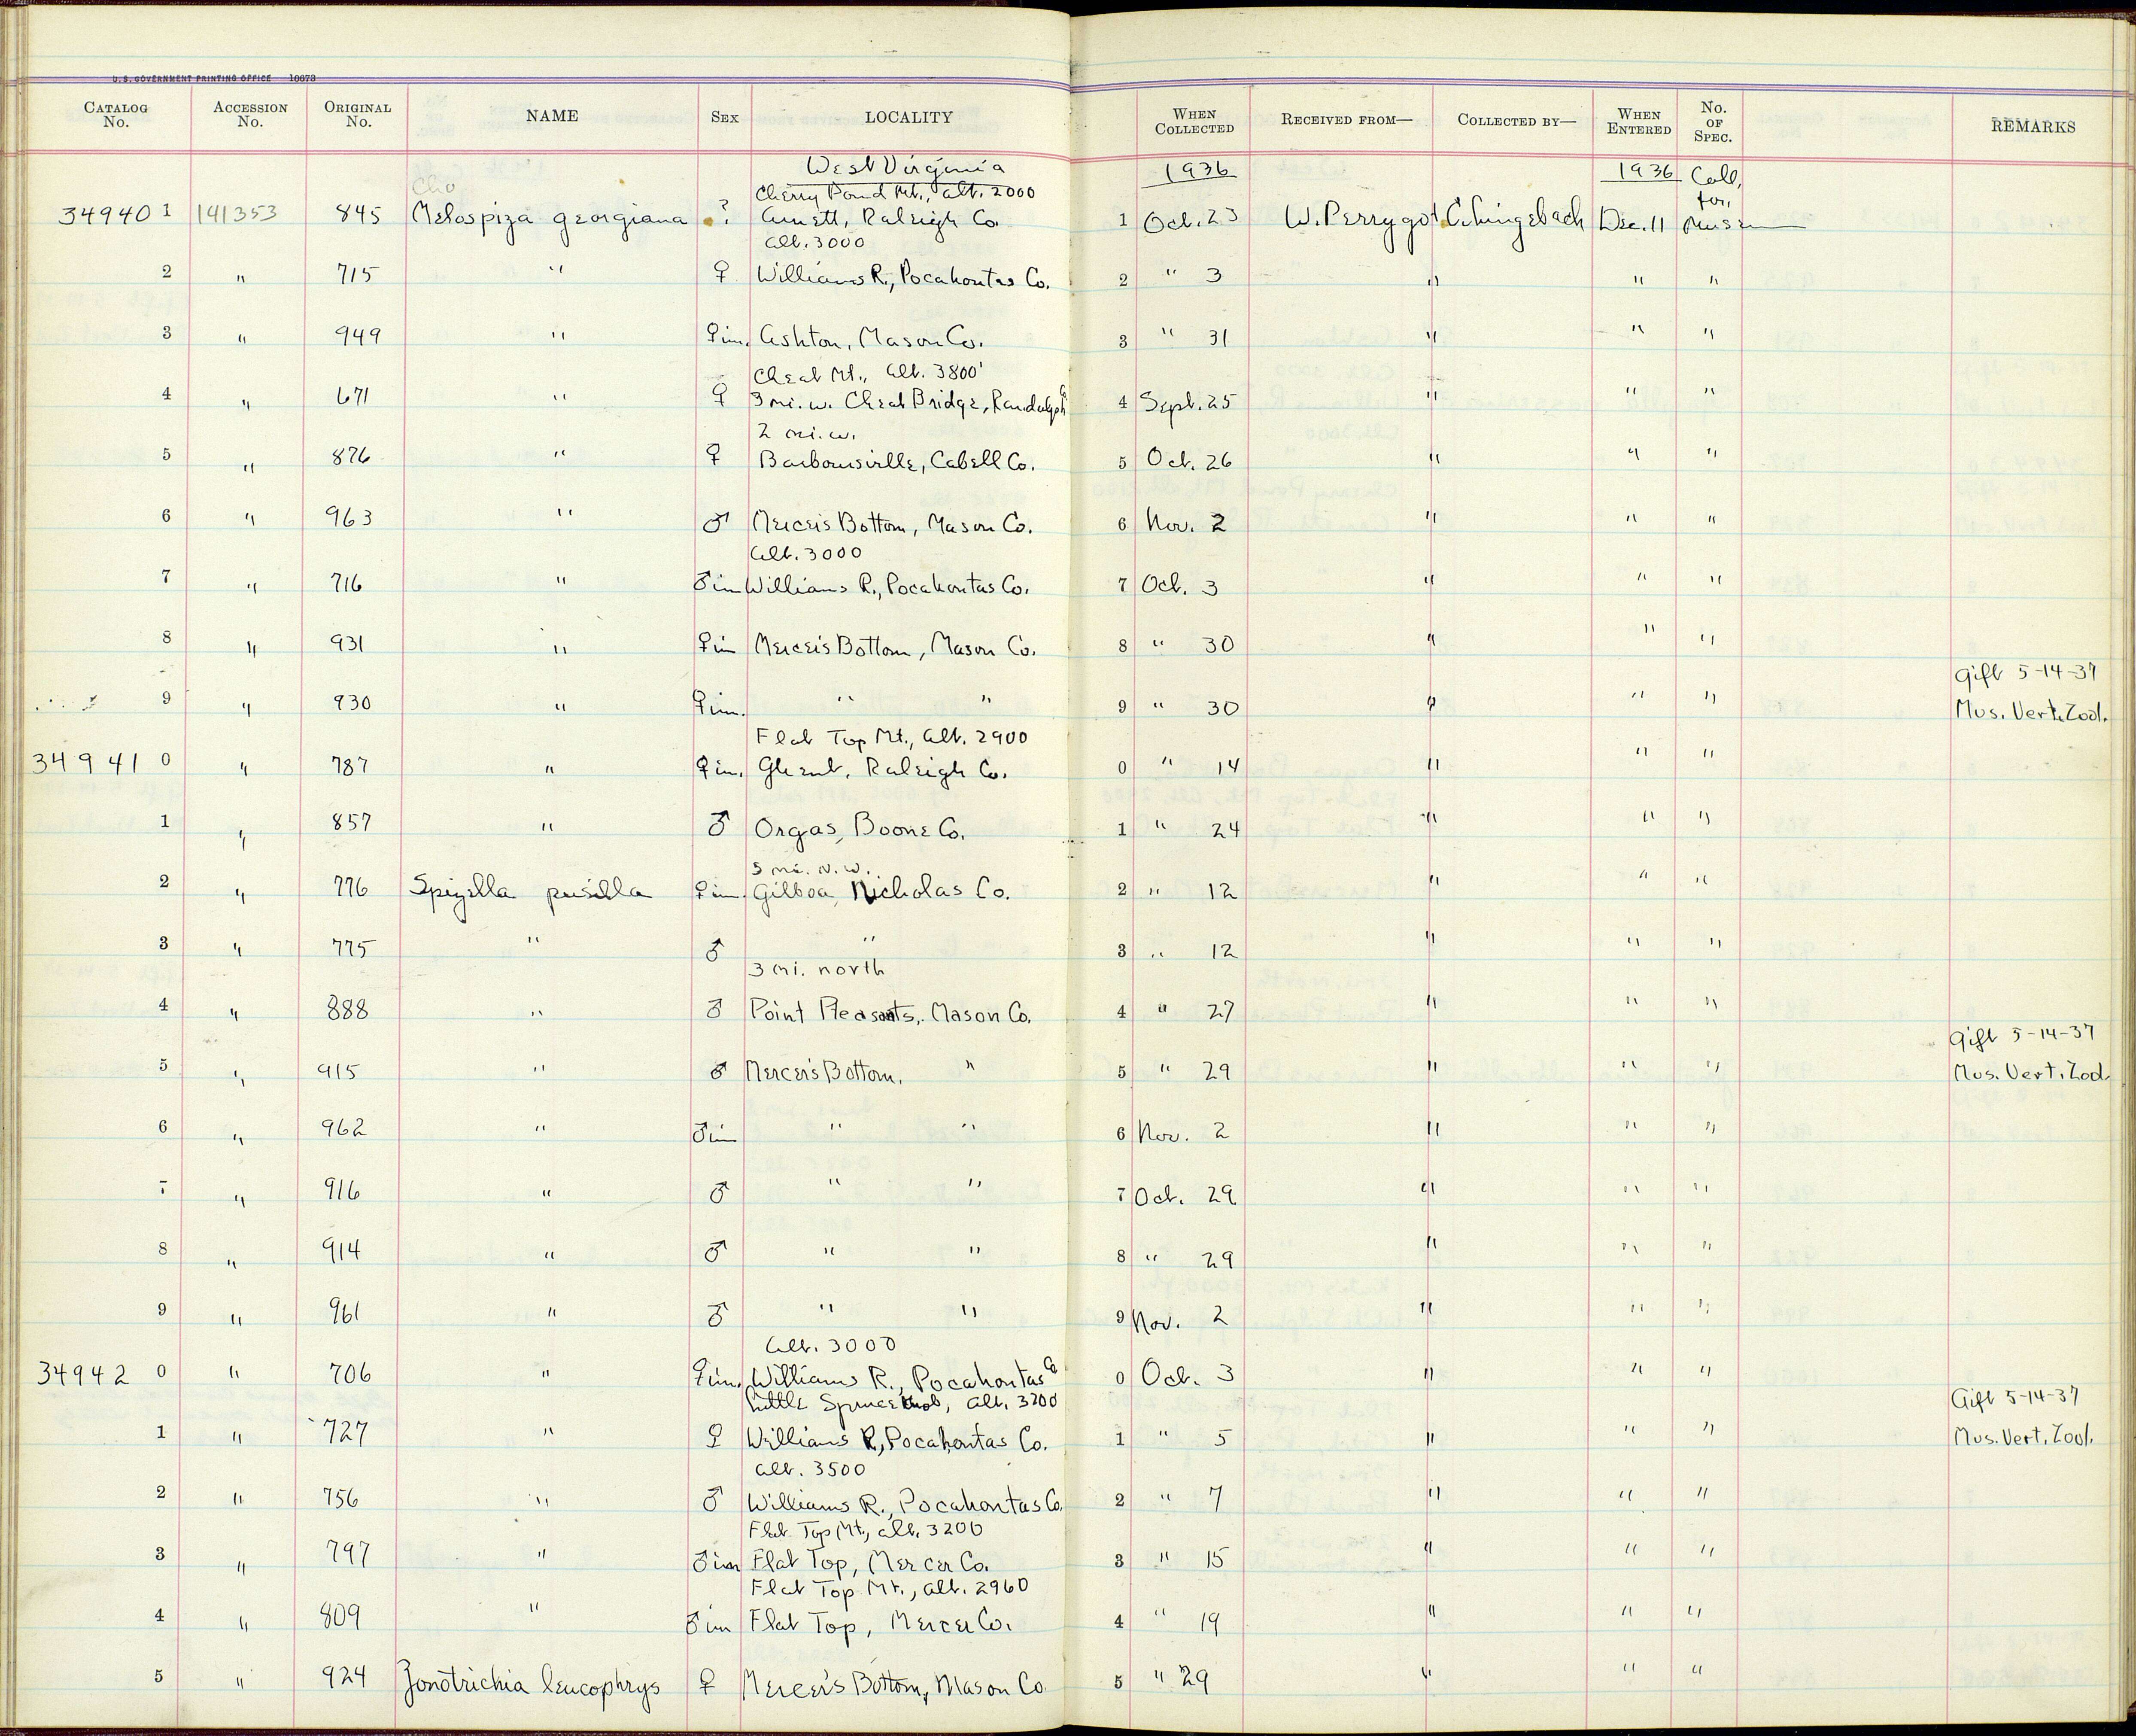 U.S. GOVERNMENT PRINTING OFFICE 10673
CATALOG No. ACCESSION No. ORIGINAL No. NAME SEX LOCALITY WHEN COLLECTED RECEIVED FROM— COLLECTED BY— WHEN ENTERED No. OF SPEC. REMARKS
West Virginia 1936 1936 Coll.
Cho Cherry Pond Mt., alt. 2000 for
34940 1 141353 845 Melospiza georgiana ? Arnett, Raleigh Co. 1 Oct. 23 W. Perrygo Dec. 11 Mus.
alt. 3000
2 " 715 " ♀ Williams R., Pocahontas Co. 2 " 3 " " "
3 " 949 " ♀im. Ashton, Mason Co. 3 " 31 " " "
Cheat Mt., alt. 3800'
4 " 671 " ♀ 3 mi. w. Cheat Bridge, Randolph Co 4 Sept. 25 " " "
2 mi. w.
5 " 876 " ♀ Barboursville, Cabell Co. 5 Oct. 26 " " "
6 " 963 " ♂ Mercer's Bottom, Mason Co. 6 Nov. 2 " " "
alt. 3000
7 " 716 " ♂im Williams R., Pocahontas Co. 7 Oct. 3 " " "
8 " 931 " ♀im Mercer's Bottom, Mason Co. 8 " 30 " " "
Gift 5-14-37
9 " 930 " ♀im. " " 9 " 30 " " " Mus. Vert. Zool.
Flat Top Mt., alt. 2900
34941 0 " 787 " ♀im. Ghent, Raleigh Co. 0 " 14 " " "
1 " 857 " ♂ Orgas, Boone Co. 1 " 24 " " "
5 mi. N.W.
2 " 776 Spizella pusilla ♀im. Gilboa, Nicholas Co. 2 " 12 " " "
3 " 775 " ♂ " 3 " 12 " " "
3 mi. north
4 " 888 " ♂ Point Pleasants, Mason Co. 4 " 27 " " "
Gift 5-14-37
5 " 915 " ♂ Mercer's Bottom, " 5 " 29 " " " Mus. Vert. Zool.
6 " 962 " ♂im " " 6 Nov. 2 " " "
7 " 916 " ♂ " " 7 Oct. 29 " " "
8 " 914 " ♂ " " 8 " 29 " " "
9 " 961 " ♂ " " 9 Nov. 2 " " "
alt. 3000
34942 0 " 706 " ♀im. Williams R., Pocahontas Co 0 Oct. 3 " " "
Little Spruce Knob, alt. 3200 Gift 5-14-37
1 " 727 " ♀ Williams R., Pocahontas Co. 1 " 5 " " " Mus. Vert. Zool.
alt. 3500
2 " 756 " ♂ Williams R., Pocahontas Co. 2 " 7 " " "
Flat Top Mt., alt. 3200
3 " 797 " ♂im Flat Top, Mercer Co. 3 " 15 " " "
Flat Top Mt., alt. 2960
4 " 809 " ♂im Flat Top, Mercer Co. 4 " 19 " " "
5 " 924 Zonotrichia leucophrys ♀ Mercer's Bottom, Mason Co 5 " 29 " " "